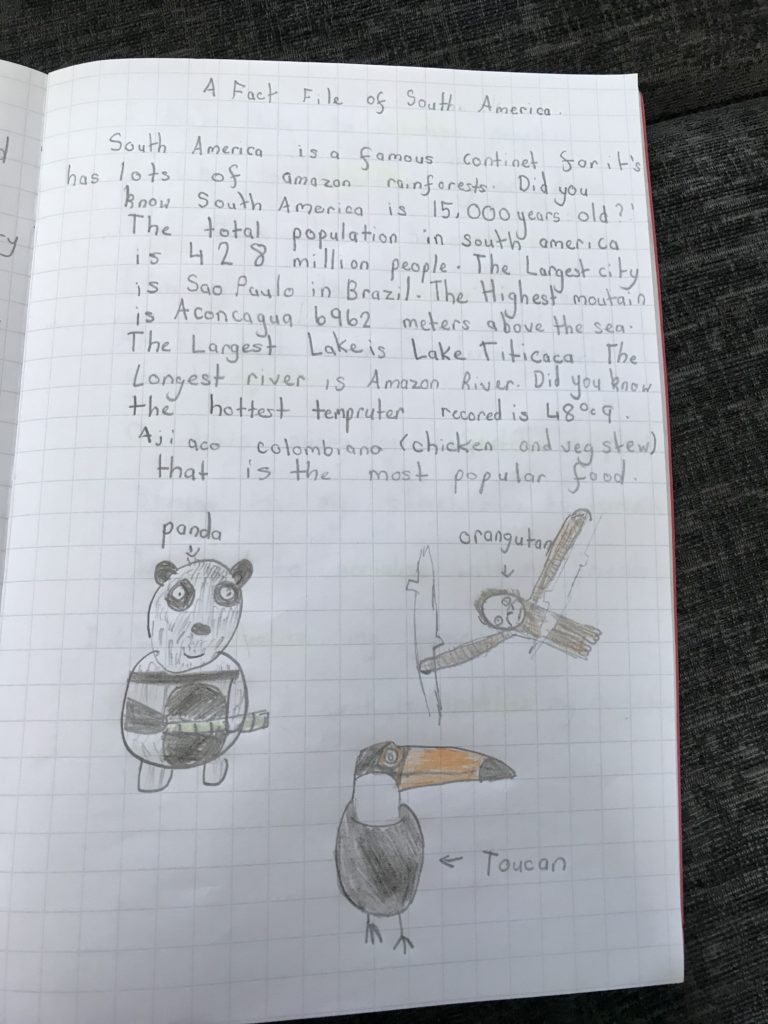 A Fact File of South America.
South America is a famous continet for it's
has lots of amazon rainforests. Did you
know South America is 15,000 years old?!
The total population in south america
is 428 million people. The Largest city
is Sao Paulo in Brazil. The Highest moutain
is Aconcagua 6962 meters above the sea.
The Largest Lake is Lake Titicaca The
Longest river is Amazon River. Did you know
the hottest tempruter recored is 48°c9.
Aji aco colombiano (chicken and veg stew)
that is the most popular food.
panda
orangutan
Toucan